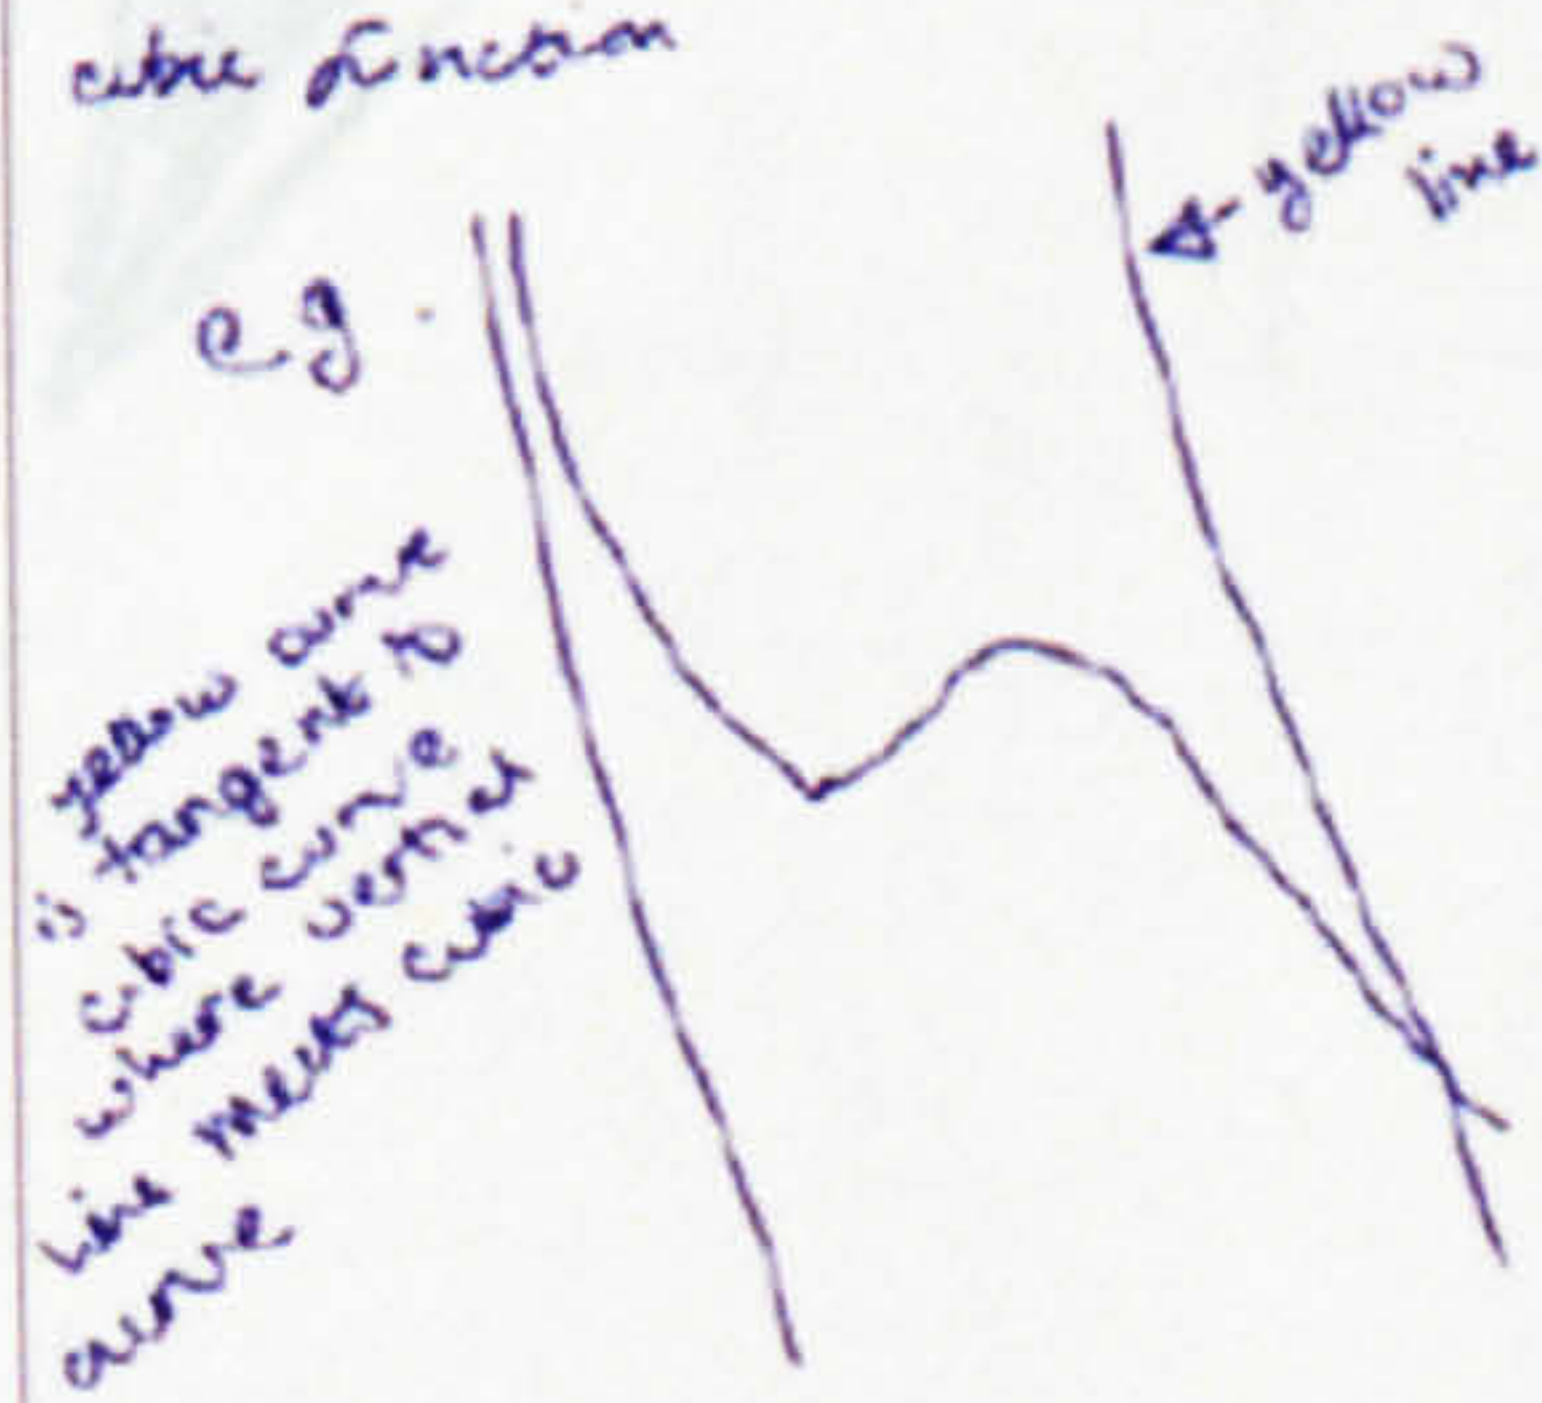 cubic function
yellow
line
e.g.
yellow curve
is tangent to
cubic curve
where vertical
line meets cubic
curve